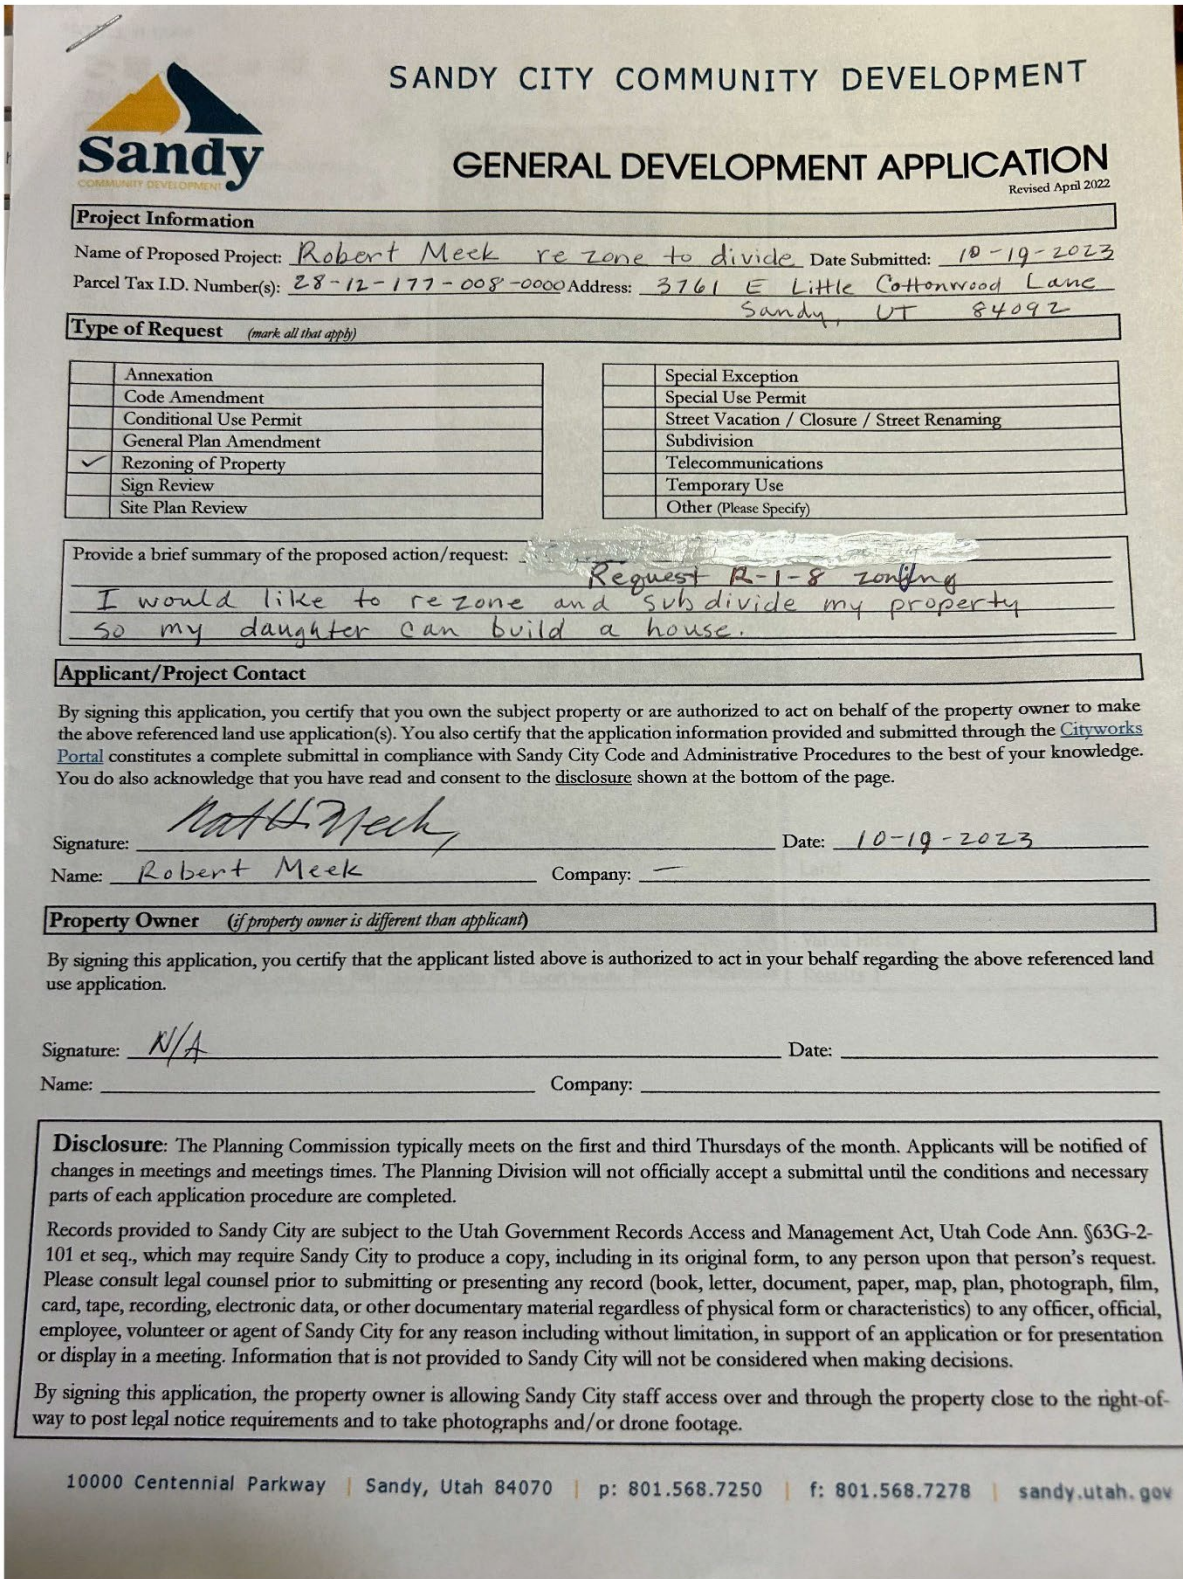 SANDY CITY COMMUNITY DEVELOPMENT
Sandy
COMMUNITY DEVELOPMENT
GENERAL DEVELOPMENT APPLICATION
Revised April 2022
Project Information
Name of Proposed Project: Robert Meek re zone to divide Date Submitted: 10-19-2023
Parcel Tax I.D. Number(s): 28-12-177-008-0000 Address: 3761 E Little Cottonwood Lane
Sandy, UT 84092
Type of Request (mark all that apply)
Annexation
Code Amendment
Conditional Use Permit
General Plan Amendment
✓ Rezoning of Property
Sign Review
Site Plan Review
Special Exception
Special Use Permit
Street Vacation / Closure / Street Renaming
Subdivision
Telecommunications
Temporary Use
Other (Please Specify)
Provide a brief summary of the proposed action/request:
Request R-1-8 zoning
I would like to re zone and subdivide my property
so my daughter can build a house.
Applicant/Project Contact
By signing this application, you certify that you own the subject property or are authorized to act on behalf of the property owner to make
the above referenced land use application(s). You also certify that the application information provided and submitted through the Cityworks
Portal constitutes a complete submittal in compliance with Sandy City Code and Administrative Procedures to the best of your knowledge.
You do also acknowledge that you have read and consent to the disclosure shown at the bottom of the page.
Signature: Date: 10-19-2023
Name: Robert Meek Company: —
Property Owner (if property owner is different than applicant)
By signing this application, you certify that the applicant listed above is authorized to act in your behalf regarding the above referenced land
use application.
Signature: N/A Date:
Name: Company:
Disclosure: The Planning Commission typically meets on the first and third Thursdays of the month. Applicants will be notified of
changes in meetings and meetings times. The Planning Division will not officially accept a submittal until the conditions and necessary
parts of each application procedure are completed.
Records provided to Sandy City are subject to the Utah Government Records Access and Management Act, Utah Code Ann. §63G-2-
101 et seq., which may require Sandy City to produce a copy, including in its original form, to any person upon that person's request.
Please consult legal counsel prior to submitting or presenting any record (book, letter, document, paper, map, plan, photograph, film,
card, tape, recording, electronic data, or other documentary material regardless of physical form or characteristics) to any officer, official,
employee, volunteer or agent of Sandy City for any reason including without limitation, in support of an application or for presentation
or display in a meeting. Information that is not provided to Sandy City will not be considered when making decisions.
By signing this application, the property owner is allowing Sandy City staff access over and through the property close to the right-of-
way to post legal notice requirements and to take photographs and/or drone footage.
10000 Centennial Parkway | Sandy, Utah 84070 | p: 801.568.7250 | f: 801.568.7278 | sandy.utah.gov